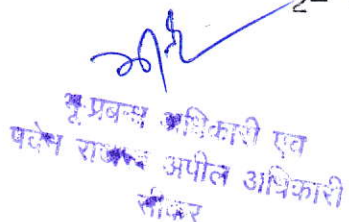 2-
भू.प्रबन्ध अधिकारी एवं
पदेन राजस्व अपील अधिकारी
सीकर